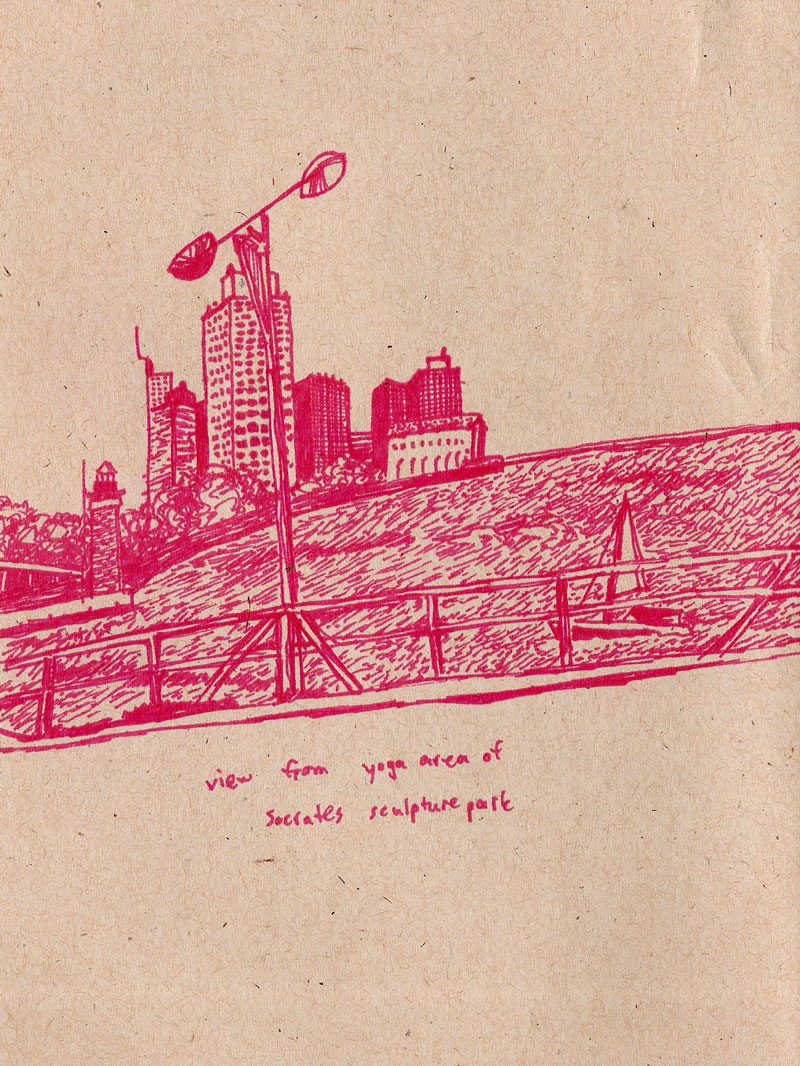 view from yoga area of
Socrates sculpture park